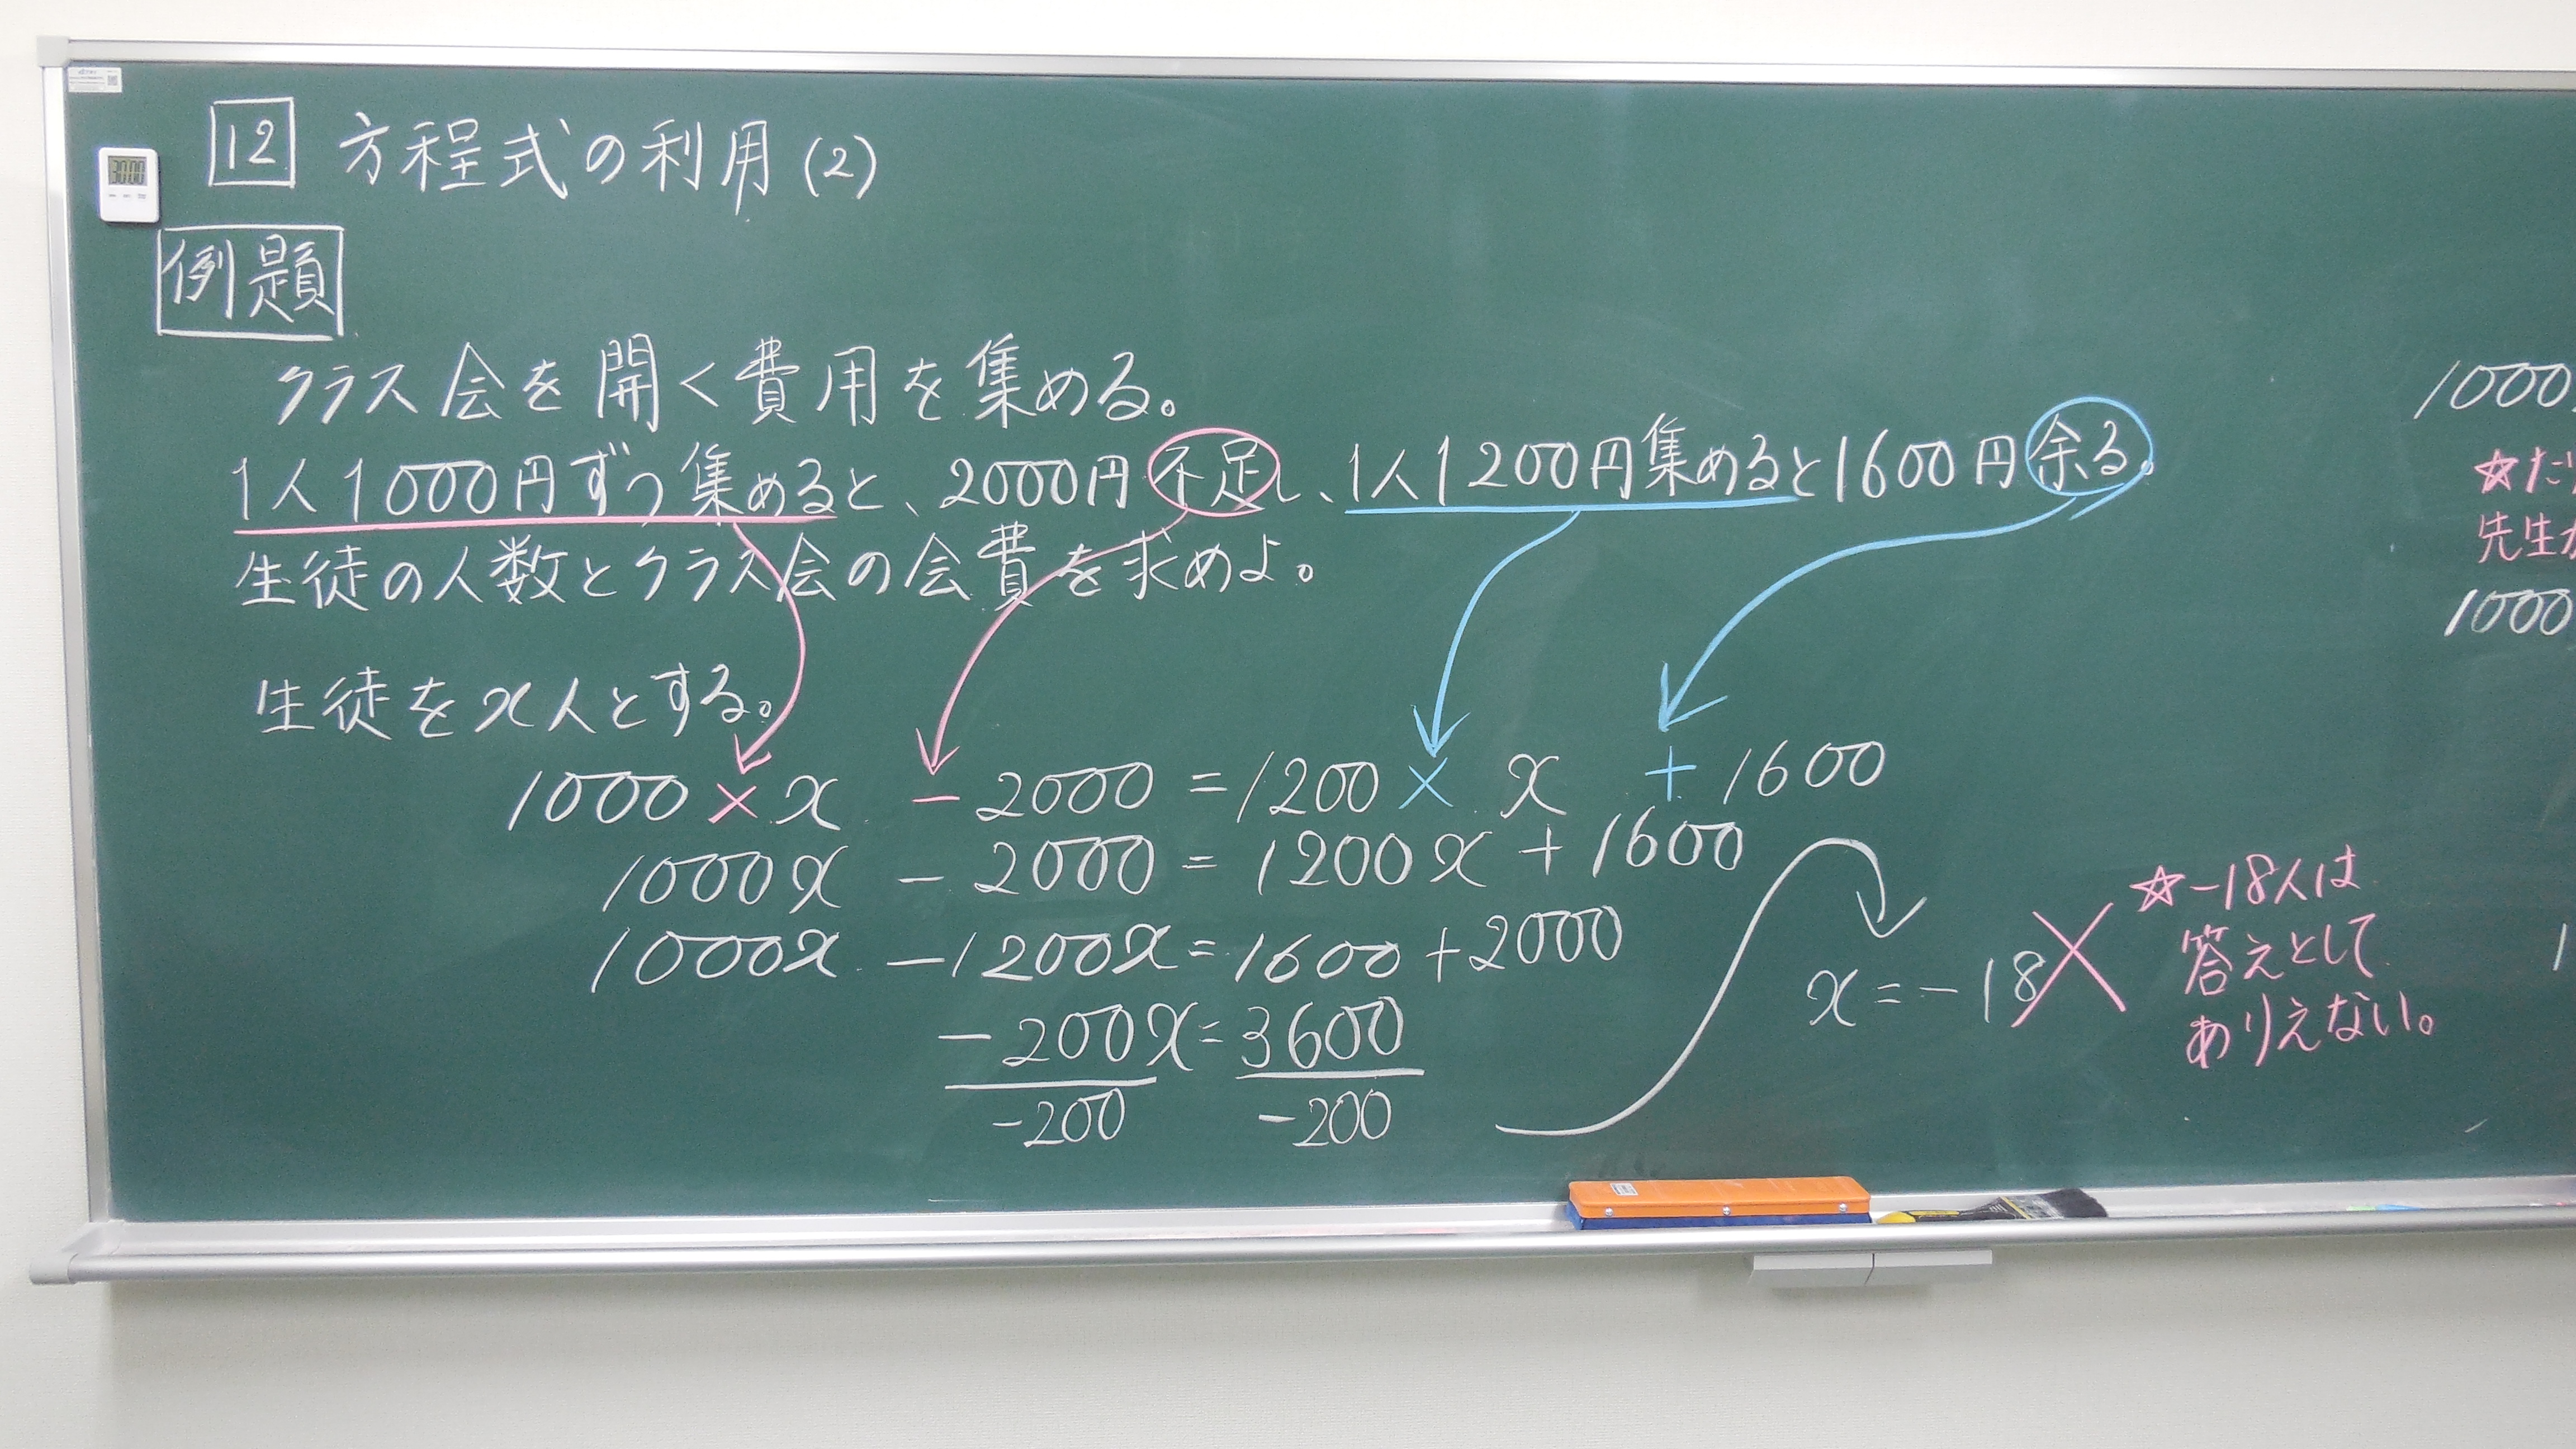 30:00
12 方程式の利用(2)
例題
クラス会を開く費用を集める。
1人1000円ずつ集めると、2000円不足し、1人1200円集めると1600円余る。
生徒の人数とクラス会の会費を求めよ。
生徒をx人とする。
1000×x - 2000 = 1200 × x + 1600
1000x - 2000 = 1200x + 1600
1000x - 1200x = 1600 + 2000
-200x = 3600
-200 -200
x = -18
☆-18人は
答えとして
ありえない。
1000
☆だ
先生が
1000
1